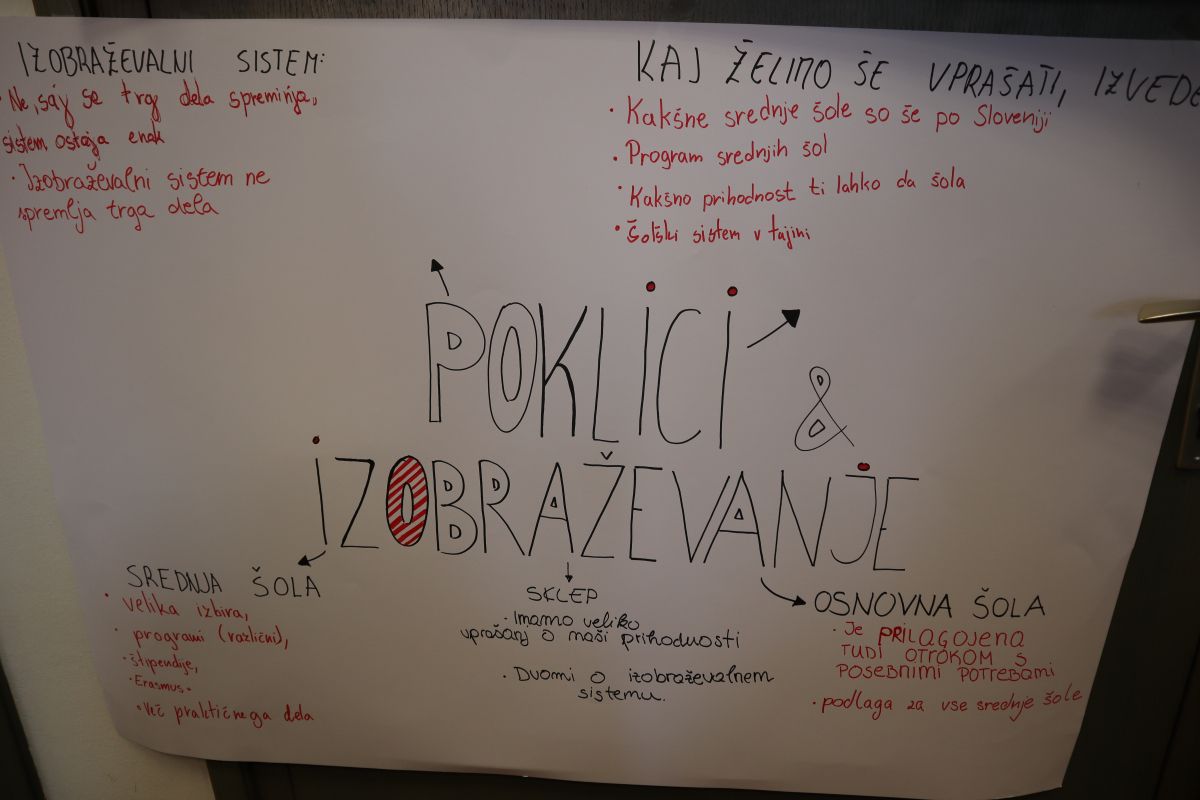 IZOBRAŽEVALNI SISTEM:
· Ne, saj se trg dela spreminja,
sistem ostaja enak
· Izobraževalni sistem ne
spremlja trga dela
KAJ ŽELIMO ŠE VPRAŠATI, IZVEDE
· Kakšne srednje šole so še po Sloveniji
· Program srednjih šol
· Kakšno prihodnost ti lahko da šola
· Šolski sistem v tujini
POKLICI &
IZOBRAŽEVANJE
SREDNJA ŠOLA
· velika izbira,
· programi (različni),
· štipendije,
· Erasmus+
· Več praktičnega dela
SKLEP
· Imamo veliko
vprašanj o naši prihodnosti
· Dvomi o izobraževalnem
sistemu.
OSNOVNA ŠOLA
· Je PRILAGOJENA
TUDI OTROKOM S
POSEBNIMI POTREBAMI
· podlaga za vse srednje šole